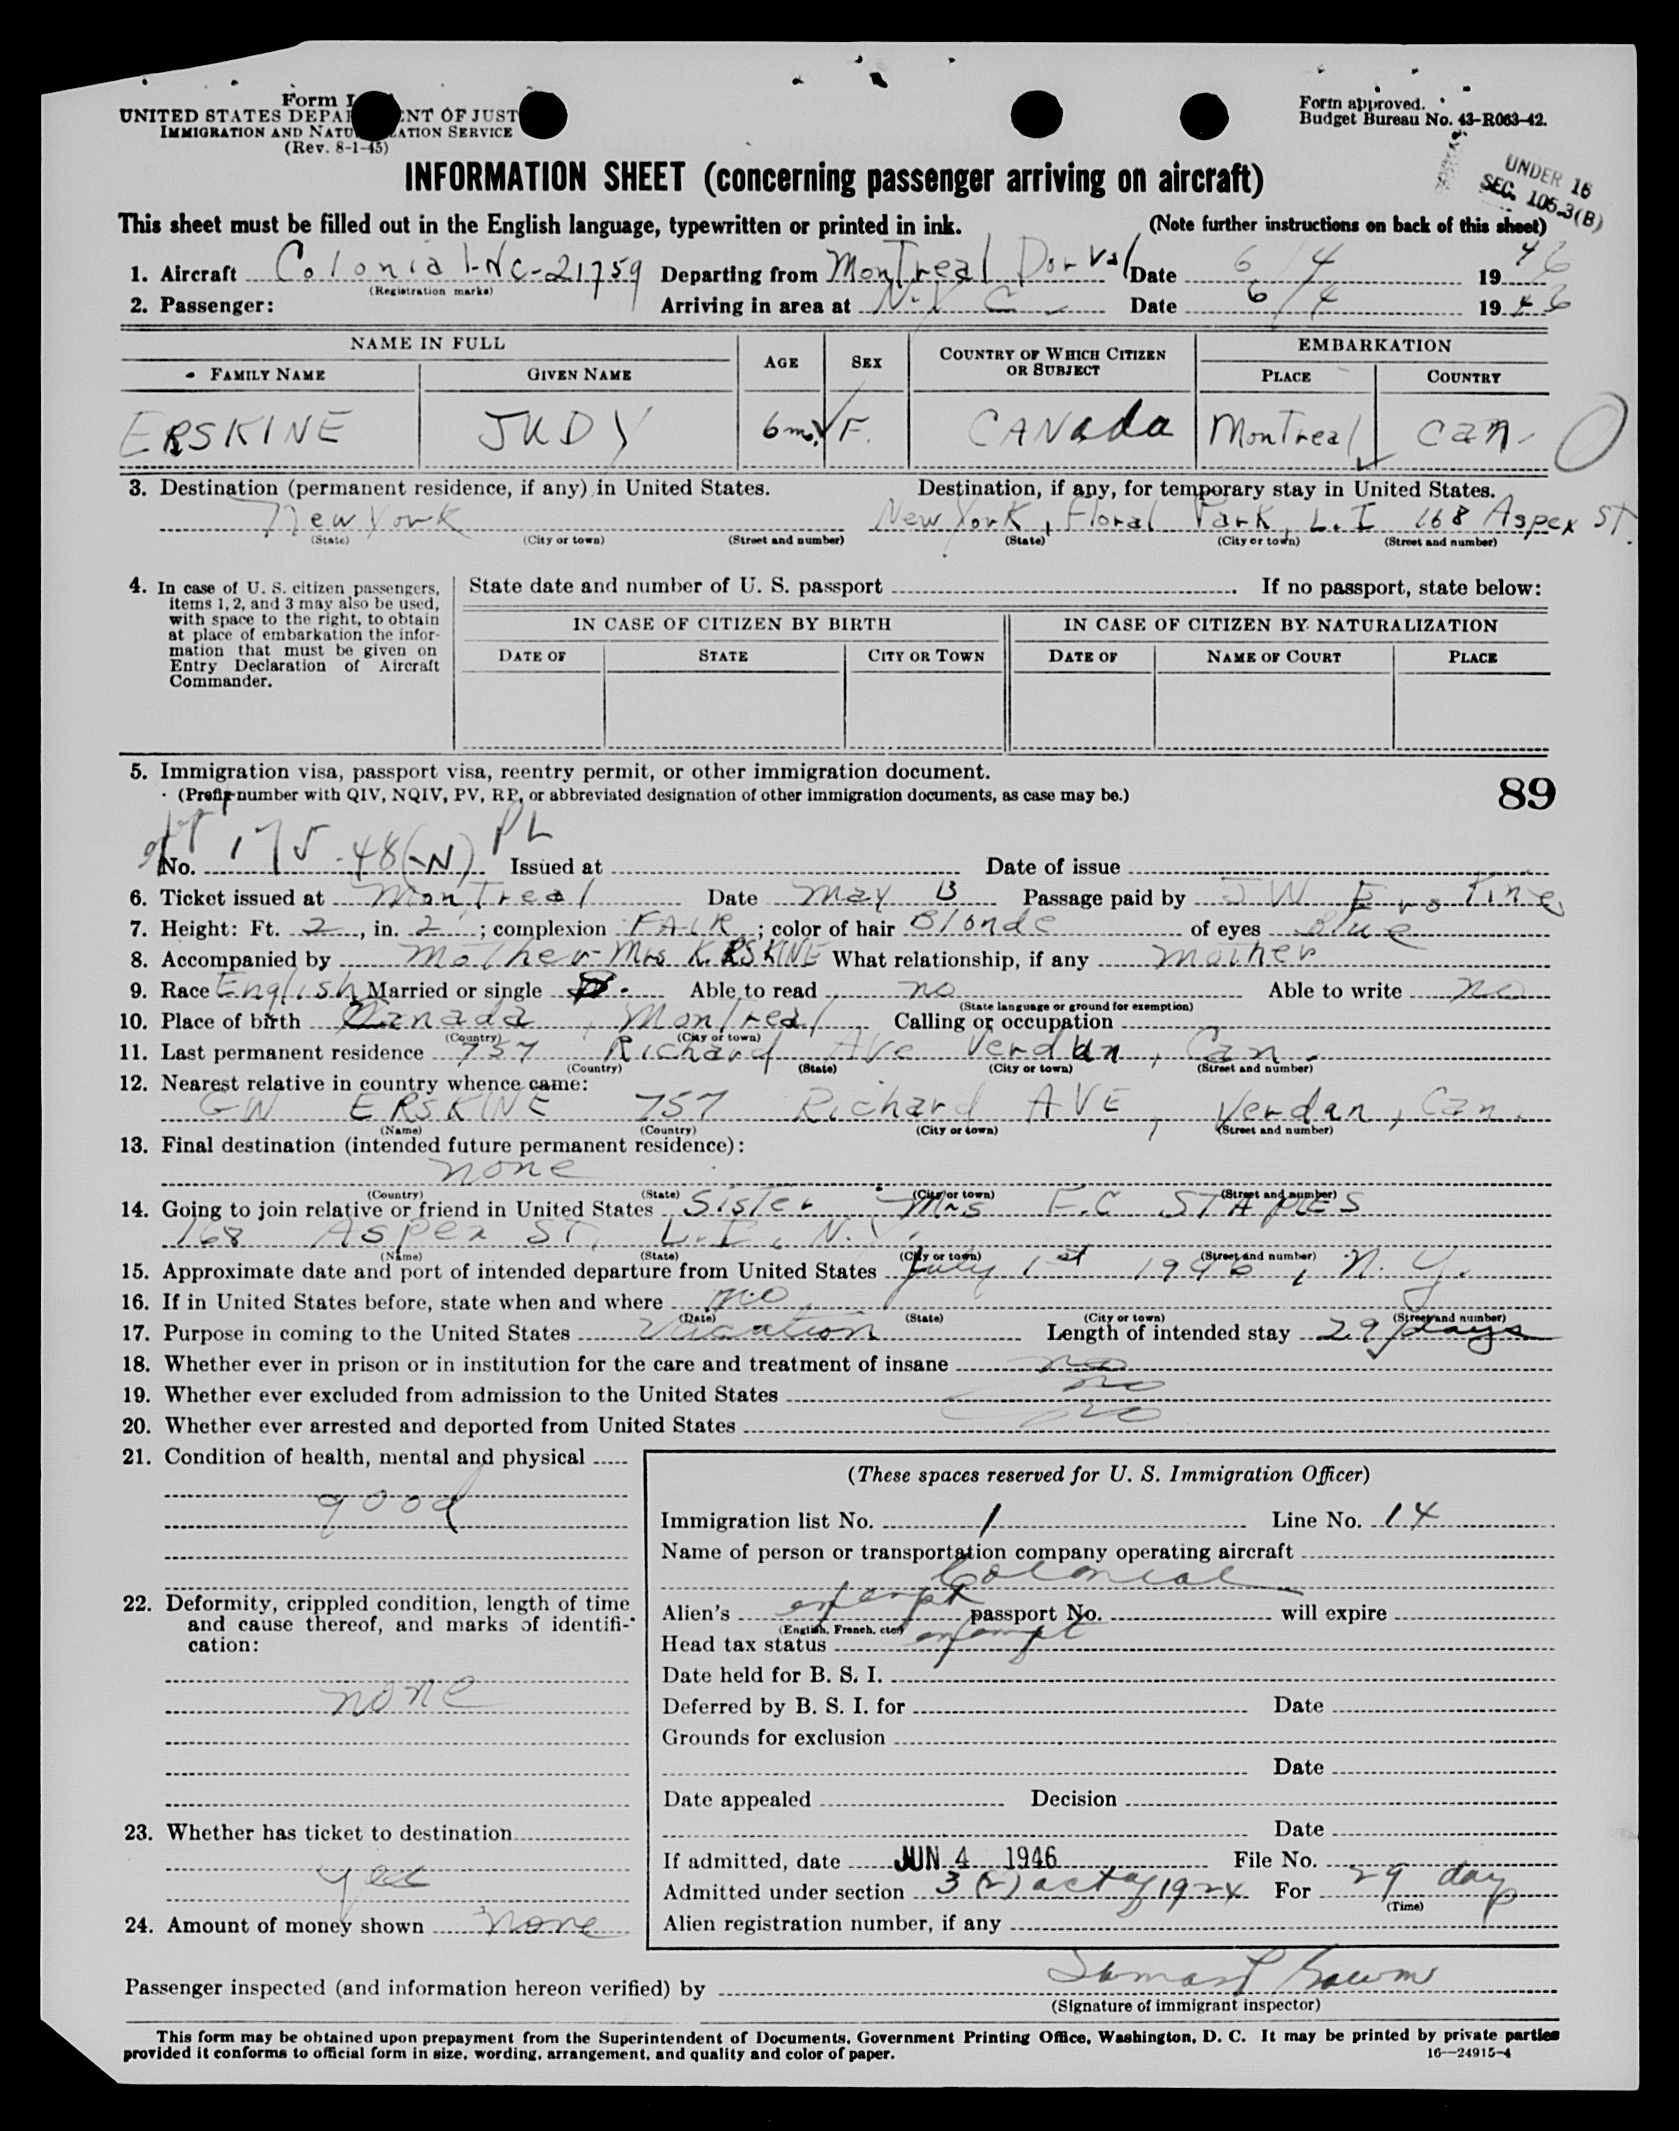 Form I
UNITED STATES DEPA ENT OF JUST
IMMIGRATION AND NATU ATION SERVICE
(Rev. 8-1-45)
Form approved.
Budget Bureau No. 43-R063-42.
UNDER 16
SEC. 105.3(B)
INFORMATION SHEET (concerning passenger arriving on aircraft)
This sheet must be filled out in the English language, typewritten or printed in ink. (Note further instructions on back of this sheet)
1. Aircraft Colonial-NC-21759 Departing from MonTreal Dorval Date 6/4 1946
(Registration marks)
2. Passenger: Arriving in area at N.Y.C. Date 6/4 1946
NAME IN FULL AGE SEX COUNTRY OF WHICH CITIZEN OR SUBJECT EMBARKATION
FAMILY NAME GIVEN NAME PLACE COUNTRY
ERSKINE JUDY 6 mo. F. CANada MonTreal Can.
3. Destination (permanent residence, if any) in United States. Destination, if any, for temporary stay in United States.
New York New York, Floral Park, L.I. 168 Aspex ST.
(State) (City or town) (Street and number) (State) (City or town) (Street and number)
4. In case of U. S. citizen passengers, items 1, 2, and 3 may also be used, with space to the right, to obtain at place of embarkation the information that must be given on Entry Declaration of Aircraft Commander.
State date and number of U. S. passport . If no passport, state below:
IN CASE OF CITIZEN BY BIRTH IN CASE OF CITIZEN BY NATURALIZATION
DATE OF STATE CITY OR TOWN DATE OF NAME OF COURT PLACE
5. Immigration visa, passport visa, reentry permit, or other immigration document.
(Prefix number with QIV, NQIV, PV, RP, or abbreviated designation of other immigration documents, as case may be.)
89
PL
No. 175.48(-N) Issued at Date of issue
6. Ticket issued at MonTreal Date May 13 Passage paid by JW Erskine
7. Height: Ft. 2, in. 2; complexion FAIR; color of hair Blonde of eyes Blue
8. Accompanied by MoTher-Mrs K. ERSKINE What relationship, if any MoTher
9. Race English Married or single Able to read no Able to write no
(State language or ground for exemption)
10. Place of birth Canada, MonTreal Calling or occupation
(Country) (City or town)
11. Last permanent residence 757 Richard Ave Verdun, Can.
(Country) (State) (City or town) (Street and number)
12. Nearest relative in country whence came:
GW ERSKINE 757 Richard AVE, Verdun, Can.
(Name) (Country) (City or town) (Street and number)
13. Final destination (intended future permanent residence):
none
(Country) (State) (City or town) (Street and number)
14. Going to join relative or friend in United States Sister Mrs F.C STAPLES
168 Aspex ST, L.I., N.Y.
(Name) (State) (City or town) (Street and number)
15. Approximate date and port of intended departure from United States July 1st 1946, N.Y.
16. If in United States before, state when and where no
(Date) (State) (City or town) (Street and number)
17. Purpose in coming to the United States Vacation Length of intended stay 29 days
18. Whether ever in prison or in institution for the care and treatment of insane no
19. Whether ever excluded from admission to the United States no
20. Whether ever arrested and deported from United States no
21. Condition of health, mental and physical
good
22. Deformity, crippled condition, length of time and cause thereof, and marks of identification:
none
23. Whether has ticket to destination
yes
24. Amount of money shown none
(These spaces reserved for U. S. Immigration Officer)
Immigration list No. 1 Line No. 14
Name of person or transportation company operating aircraft
Colonial
Alien's exempt passport No. will expire
(English, French, etc.)
Head tax status exempt
Date held for B. S. I.
Deferred by B. S. I. for Date
Grounds for exclusion
Date
Date appealed Decision
Date
If admitted, date JUN 4 1946 File No.
Admitted under section 3(2) act of 1924 For 29 day
(Time)
Alien registration number, if any
Passenger inspected (and information hereon verified) by
(Signature of immigrant inspector)
This form may be obtained upon prepayment from the Superintendent of Documents, Government Printing Office, Washington, D. C. It may be printed by private parties
provided it conforms to official form in size, wording, arrangement, and quality and color of paper. 16—24915-4